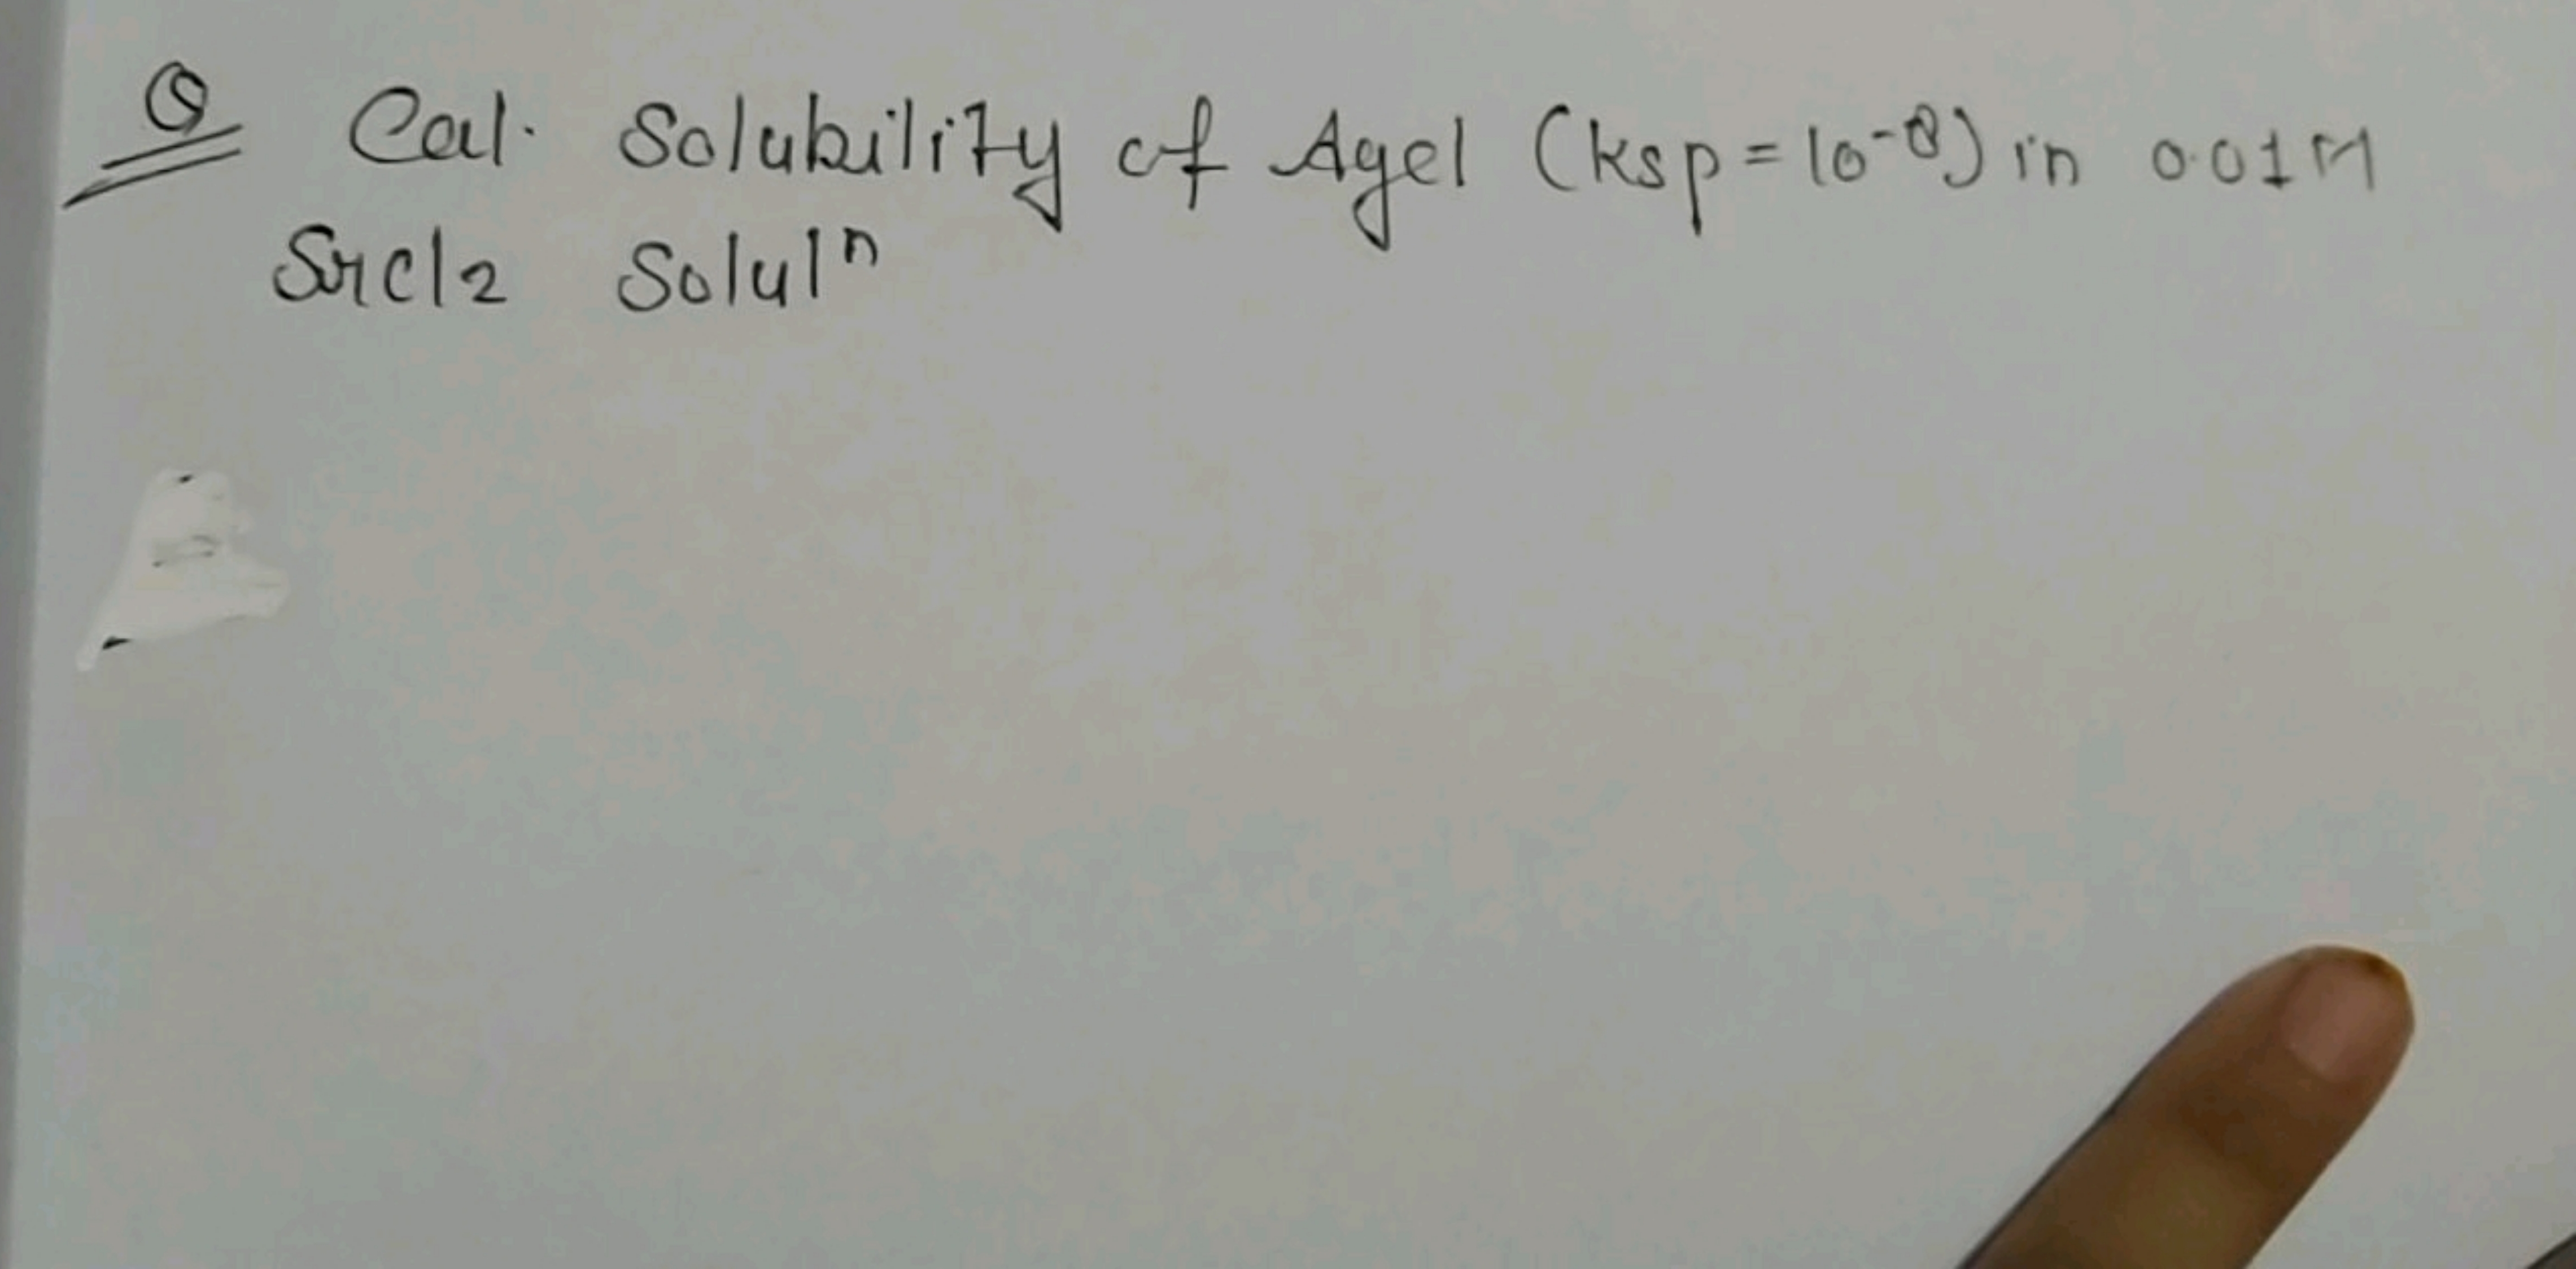 Q Cal. Solubility of Agcl (ksp=10-8) in 0.01M
Srcl2 Solulⁿ